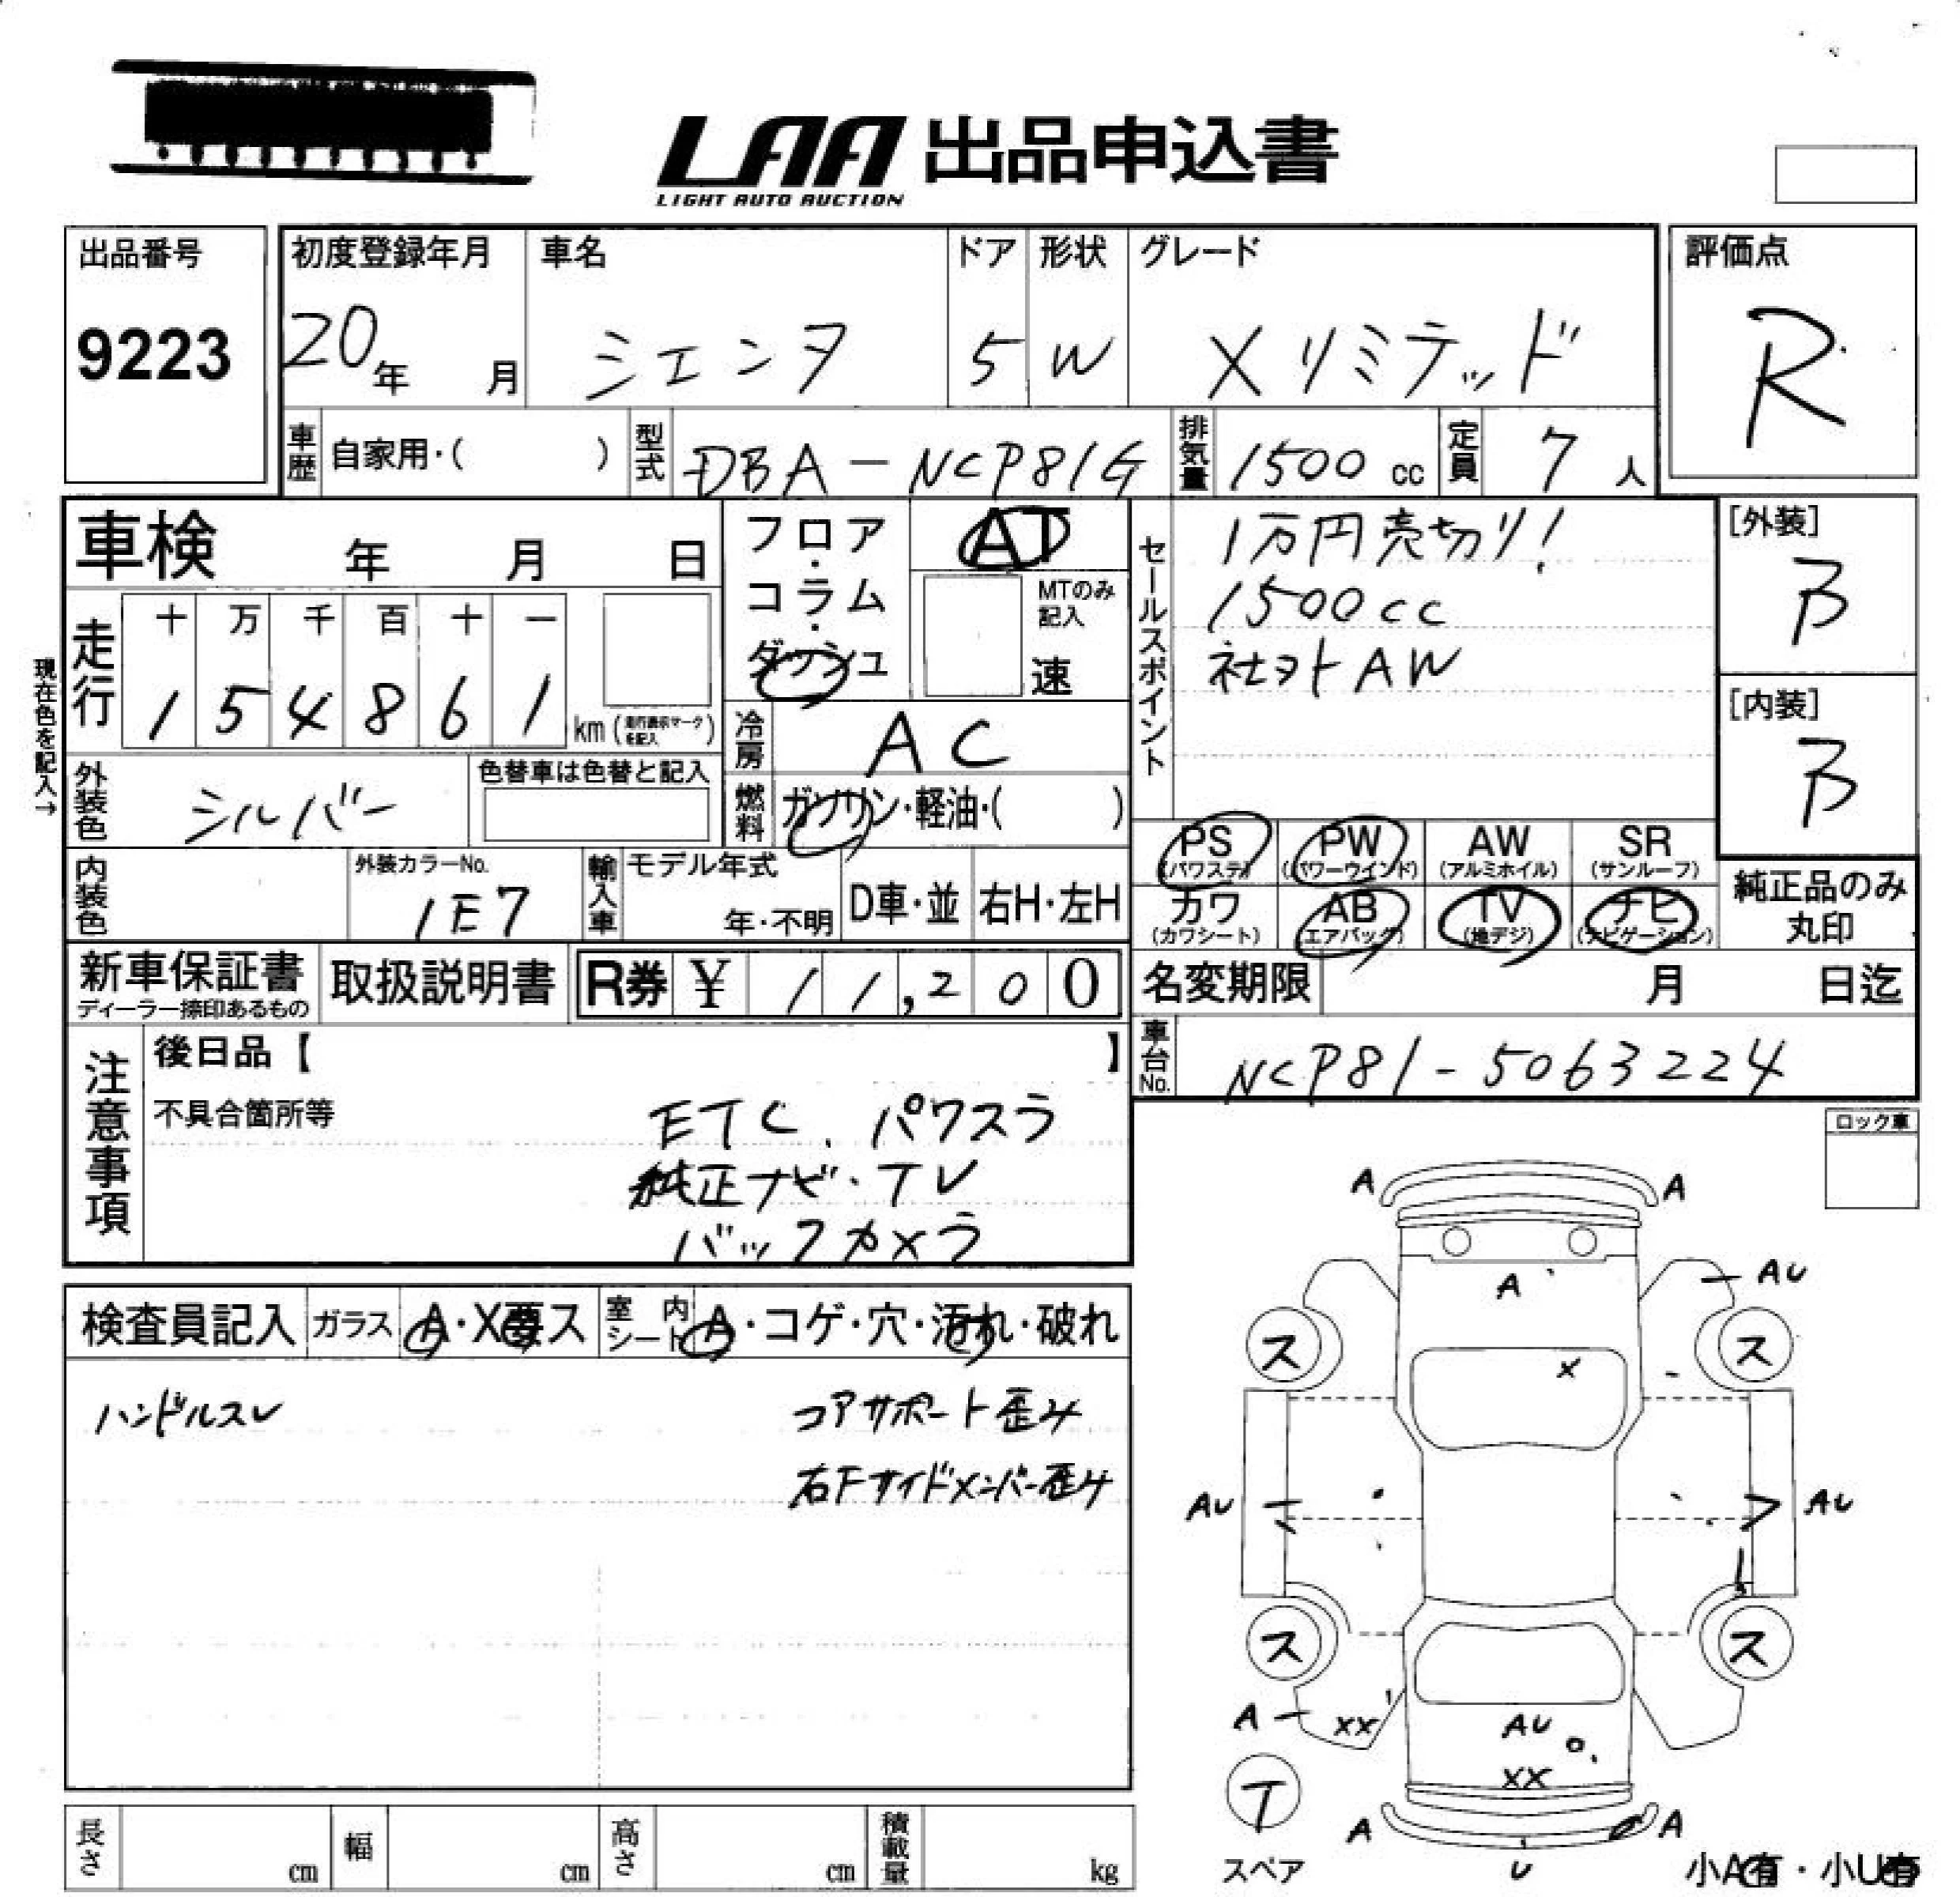 LAA 出品申込書
LIGHT AUTO AUCTION
出品番号
9223
初度登録年月
20年 月
車名
シエンタ
ドア
5
形状
W
グレード
Xリミテッド
評価点
R
車歴 自家用・( )
型式 DBA-NCP81G
排気量 1500 cc
定員 7 人
車検 年 月 日
フロア・コラム・ダッシュ
AT
MTのみ記入
速
セールスポイント
1万円売切り!
1500cc
社外AW
[外装]
B
[内装]
B
現在色を記入→
走行
十 万 千 百 十 一
1 5 4 8 6 1 km (走行表示マークを記入)
冷房 AC
外装色 シルバー
色替車は色替と記入
燃料 ガソリン・軽油・( )
PS (パワステ)
PW (パワーウインド)
AW (アルミホイル)
SR (サンルーフ)
カワ (カワシート)
AB (エアバッグ)
TV (地デジ)
ナビ (ナビゲーション)
純正品のみ丸印
内装色
外装カラーNo.
1E7
輸入車
モデル年式
年・不明
D車・並
右H・左H
新車保証書
ディーラー捺印あるもの
取扱説明書
R券 ¥ 11,200
名変期限 月 日迄
車台No. NCP81-5063224
注意事項
後日品【 】
不具合箇所等
ETC、パワスラ
純正ナビ・TV
バックカメラ
ロック車
検査員記入
ガラス A・X要ス
室内シート A・コゲ・穴・汚れ・破れ
ハンドルスレ
コアサポート歪み
右Fサイドメンバー歪み
A A
AU
A
ス ス
X
AU AU
ス ス
A XX AU
XX
T
スペア
A A
U
小A有・小U有
長さ cm
幅 cm
高さ cm
積載量 kg